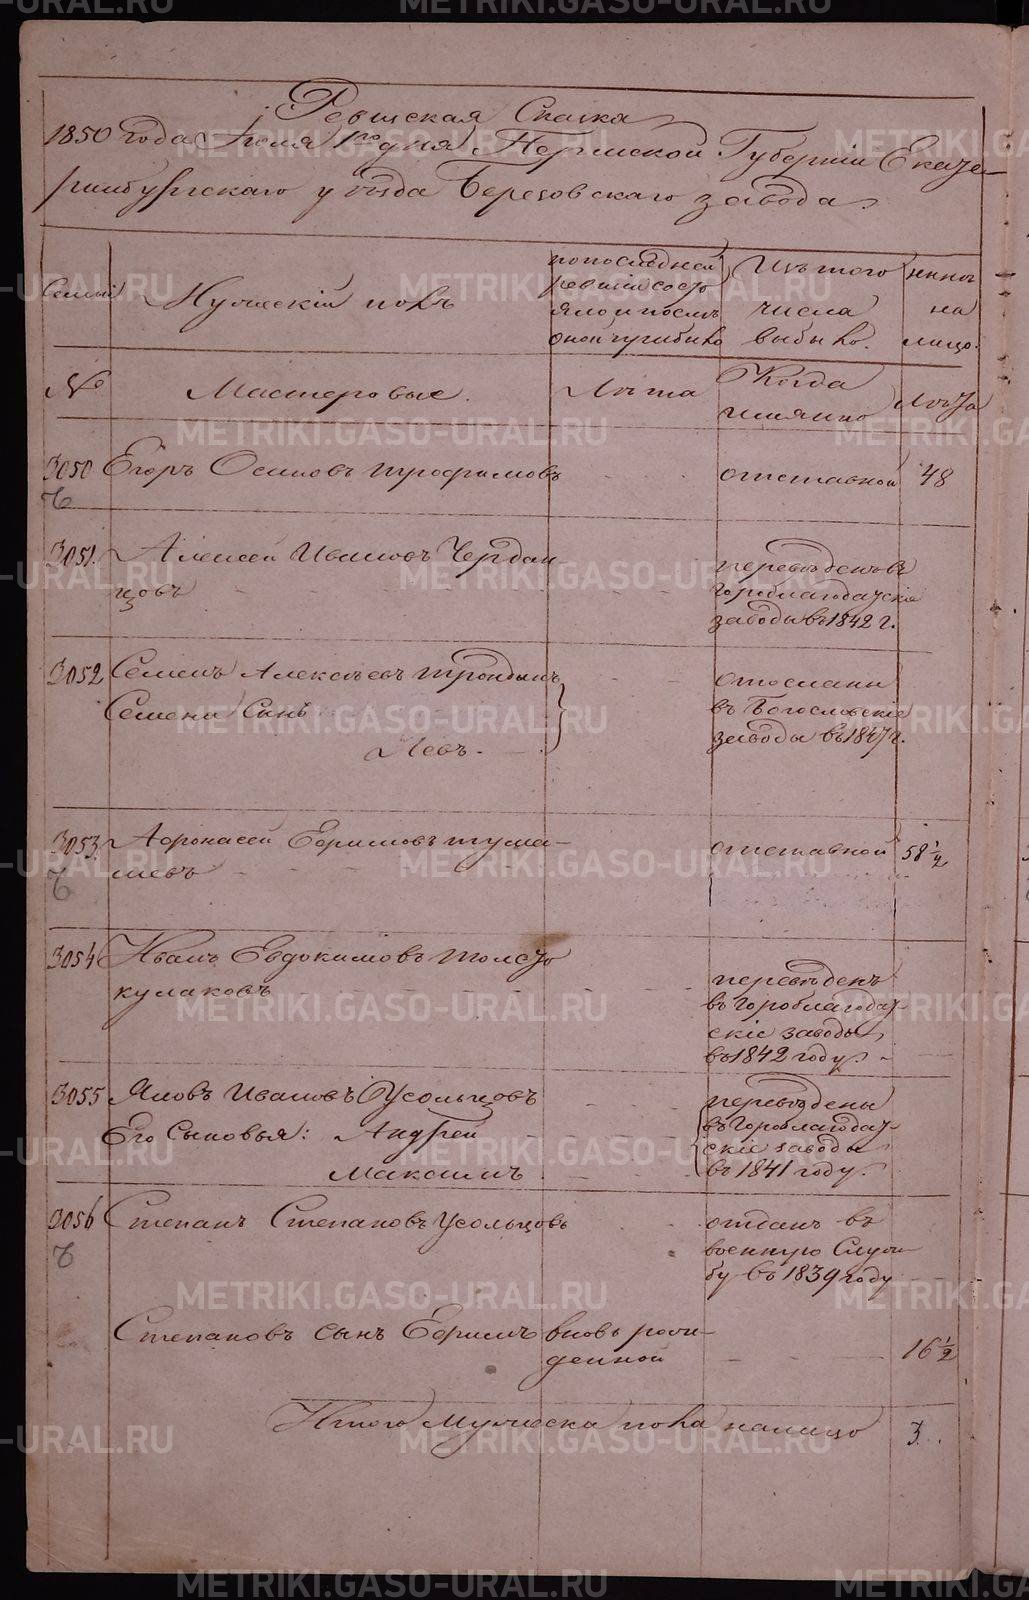 Ревизская Сказка
1850 года Июня 1го дня Пермской Губернии Екате-
ринбургскаго уѣзда Березовскаго завода.
Семьи
Мужескій полъ
по последней
ревизіи состо
яло и послѣ
оной прибыло
Изъ того
числа
выбыло.
нынѣ
на
лицо.
№
Мастеровые.
Лѣта
Когда
имянно
Лѣта
3050 Егоръ Осиповъ Трофимовъ отставной 48
3051. Алексей Ивановъ Чердан-
цовъ
переведенъ въ
Гороблагодатскіе
заводы въ 1842 г.
3052 Семенъ Алексѣевъ Трондинъ
Семена Сынъ
Левъ.
отосланы
въ Богословскіе
заводы въ 1847 г.
3053. Афонасей Ефимовъ Тума-
шевъ
отставной 58 1/2
3054 Иванъ Евдокимовъ Толсто
кулаковъ
переведенъ
въ Гороблагодат-
скіе заводы
въ 1842 году.
3055 Яковъ Ивановъ Усольцовъ
Его Сыновья: Андрей
Максимъ
переведены
въ Гороблагодат-
скіе заводы
въ 1841 году.
3056 Степанъ Степановъ Усольцовъ
отданъ въ
военную Служ-
бу въ 1839 году
Степановъ сынъ Ефимъ вновь рож-
денной 16 1/2
Итого Мужеска пола налицо 3.
METRIKI.GASO-URAL.RU